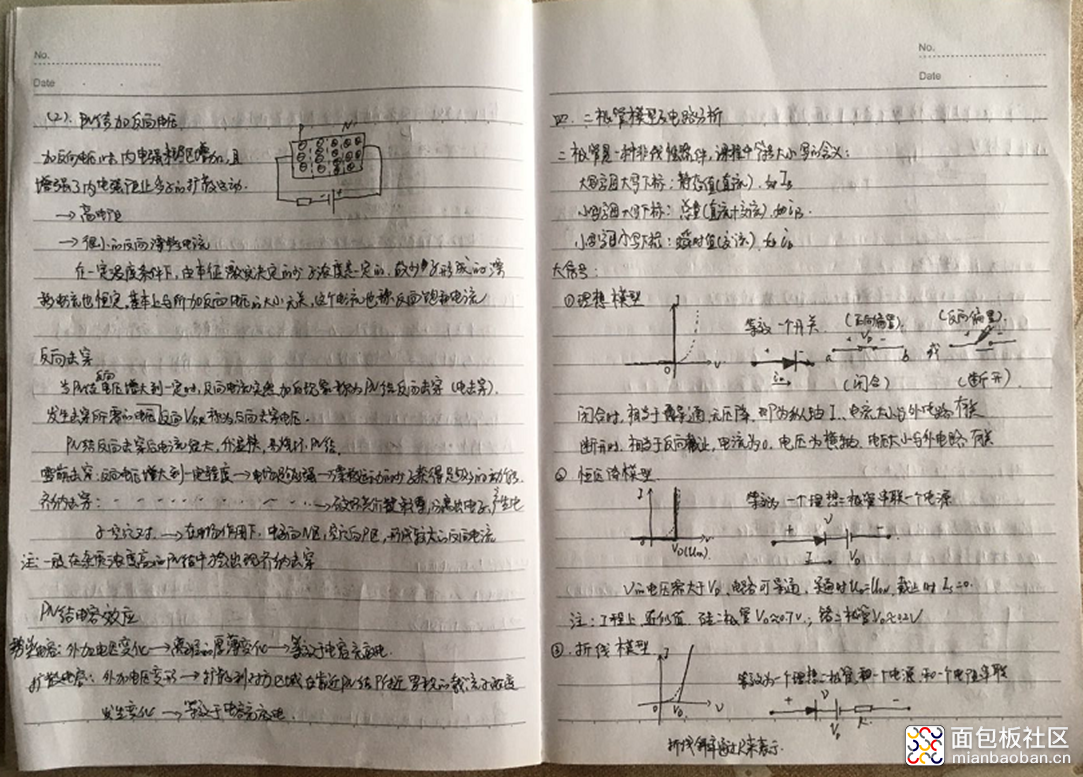 No.
Date
(2). PN结加反向电压
P N
加反向电压时内电场 增加,且
增强了内电场阻止多子的扩散运动.
→ 高电阻
→ 很小的反向漂移电流
在一定温度条件下,由本征激发决定的少子浓度是一定的,故少子形成的漂
移电流也恒定,基本上与所加反向电压的大小无关,这个电流也称反向饱和电流
反向击穿
当PN结反向电压增大到一定时,反向电流突然加 现象称为PN结反向击穿(电击穿).
发生击穿所需的电压 称为反向击穿电压.
PN结反向击穿后电流很大, 易烧坏PN结,
雪崩击穿:反向电压增大到一定程度→电场 增强→ 的少子获得足够的动能
齐纳击穿: → 分离出电子,产生电
子空穴对. →在电场作用下,电子向N区,空穴向P区,形成较大的反向电流
注:一般在杂质浓度高的PN结中才会出现齐纳击穿
PN结电容效应
势垒电容:外加电压变化→离子层的厚薄变化→等效于电容充放电.
扩散电容:外加电压变化→扩散到对方区域在靠近PN结附近累积的载流子浓度
发生变化→等效于电容充放电.
No.
Date
四. 二极管模型及电路分析
二极管是一种非线性器件,课程中符号大小写的含义:
大写字母大写下标:静态值(直流).如I_B
小写字母大写下标:总量(直流+交流).如i_B.
小写字母小写下标:瞬时值(交流).如i_b
大信号:
①理想模型
I
V
0
等效一个开关 (正向偏置). (反向偏置).
+ - a b 或
(闭合) (断开)
闭合时,相当于 导通,无压降,即为纵轴I,电流大小与外电路有关
断开时,相当于反向截止,电流为0,电压为横轴,电压大小与外电路有关
② 恒压降模型
等效为一个理想二极管串联一个电源
I
0 V_D(U_on)
+ V -
V_D
V 电压需大于V_D,电路可导通,导通时U_D=U_on,截止时I_S=0.
注:工程上,近似值,硅二极管V_D≈0.7V,锗二极管V_D≈0.2V
③. 折线模型
等效为一个理想二极管,和一个电源,和一个电阻串联
I
0 V_D V
+ V -
V_D R
折线斜率通过R来表示.
面包板社区
mianbaoban.cn